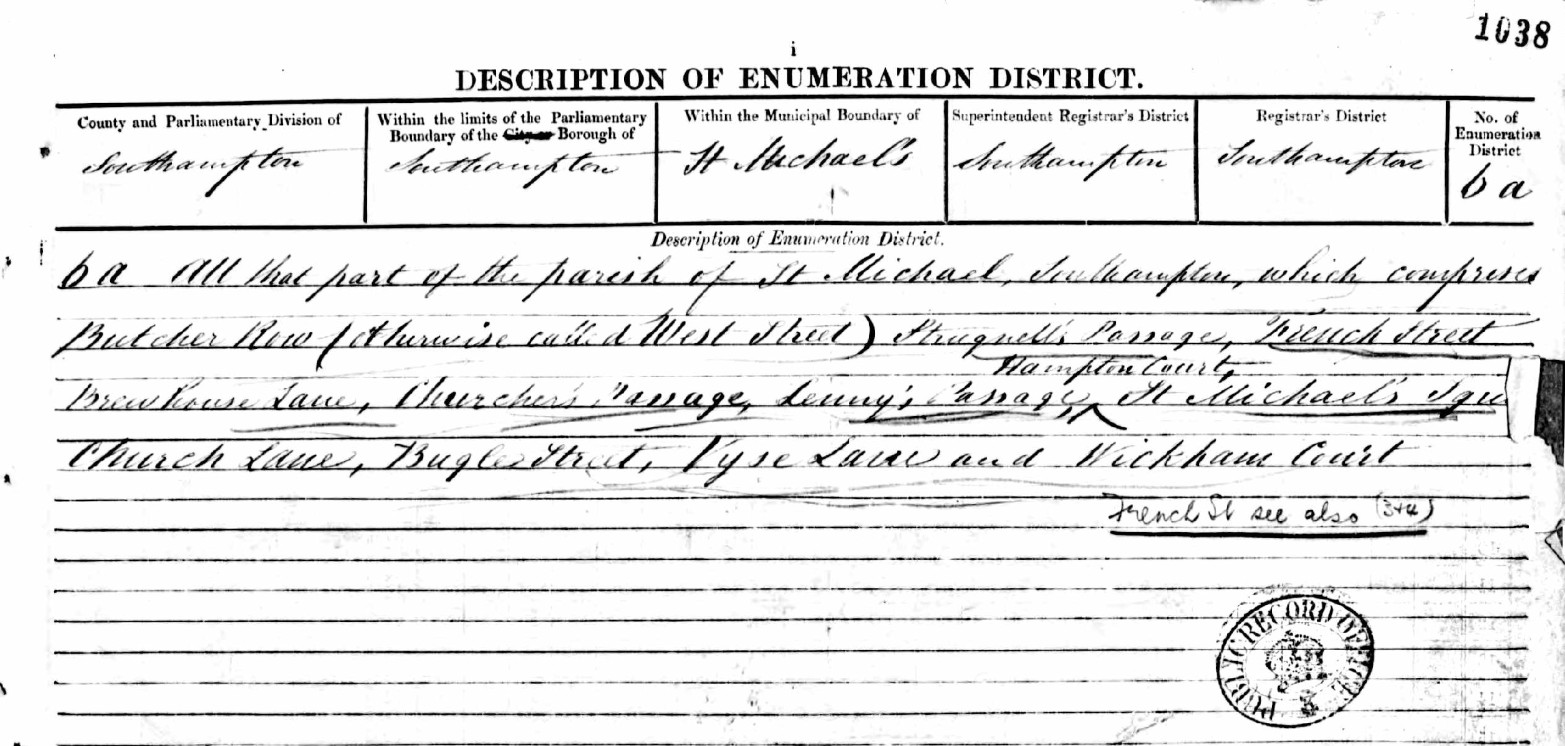 1038
i
DESCRIPTION OF ENUMERATION DISTRICT.
County and Parliamentary Division of
Southampton
Within the limits of the Parliamentary
Boundary of the City or Borough of
Southampton
Within the Municipal Boundary of
St Michael's
Superintendent Registrar's District
Southampton
Registrar's District
Southampton
No. of
Enumeration
District
6 a
Description of Enumeration District.
6 a All that part of the parish of St Michael, Southampton, which comprises
Butcher Row (otherwise called West Street) Strugnell's Passage, French Street
Hampton Court,
Brewhouse Lane, Churcher's Passage, Lenny's Passage, St Michael's Squ
Church Lane, Bugle Street, Vyse Lane and Wickham Court
French St see also (3+4)
PUBLIC RECORD OFFICE